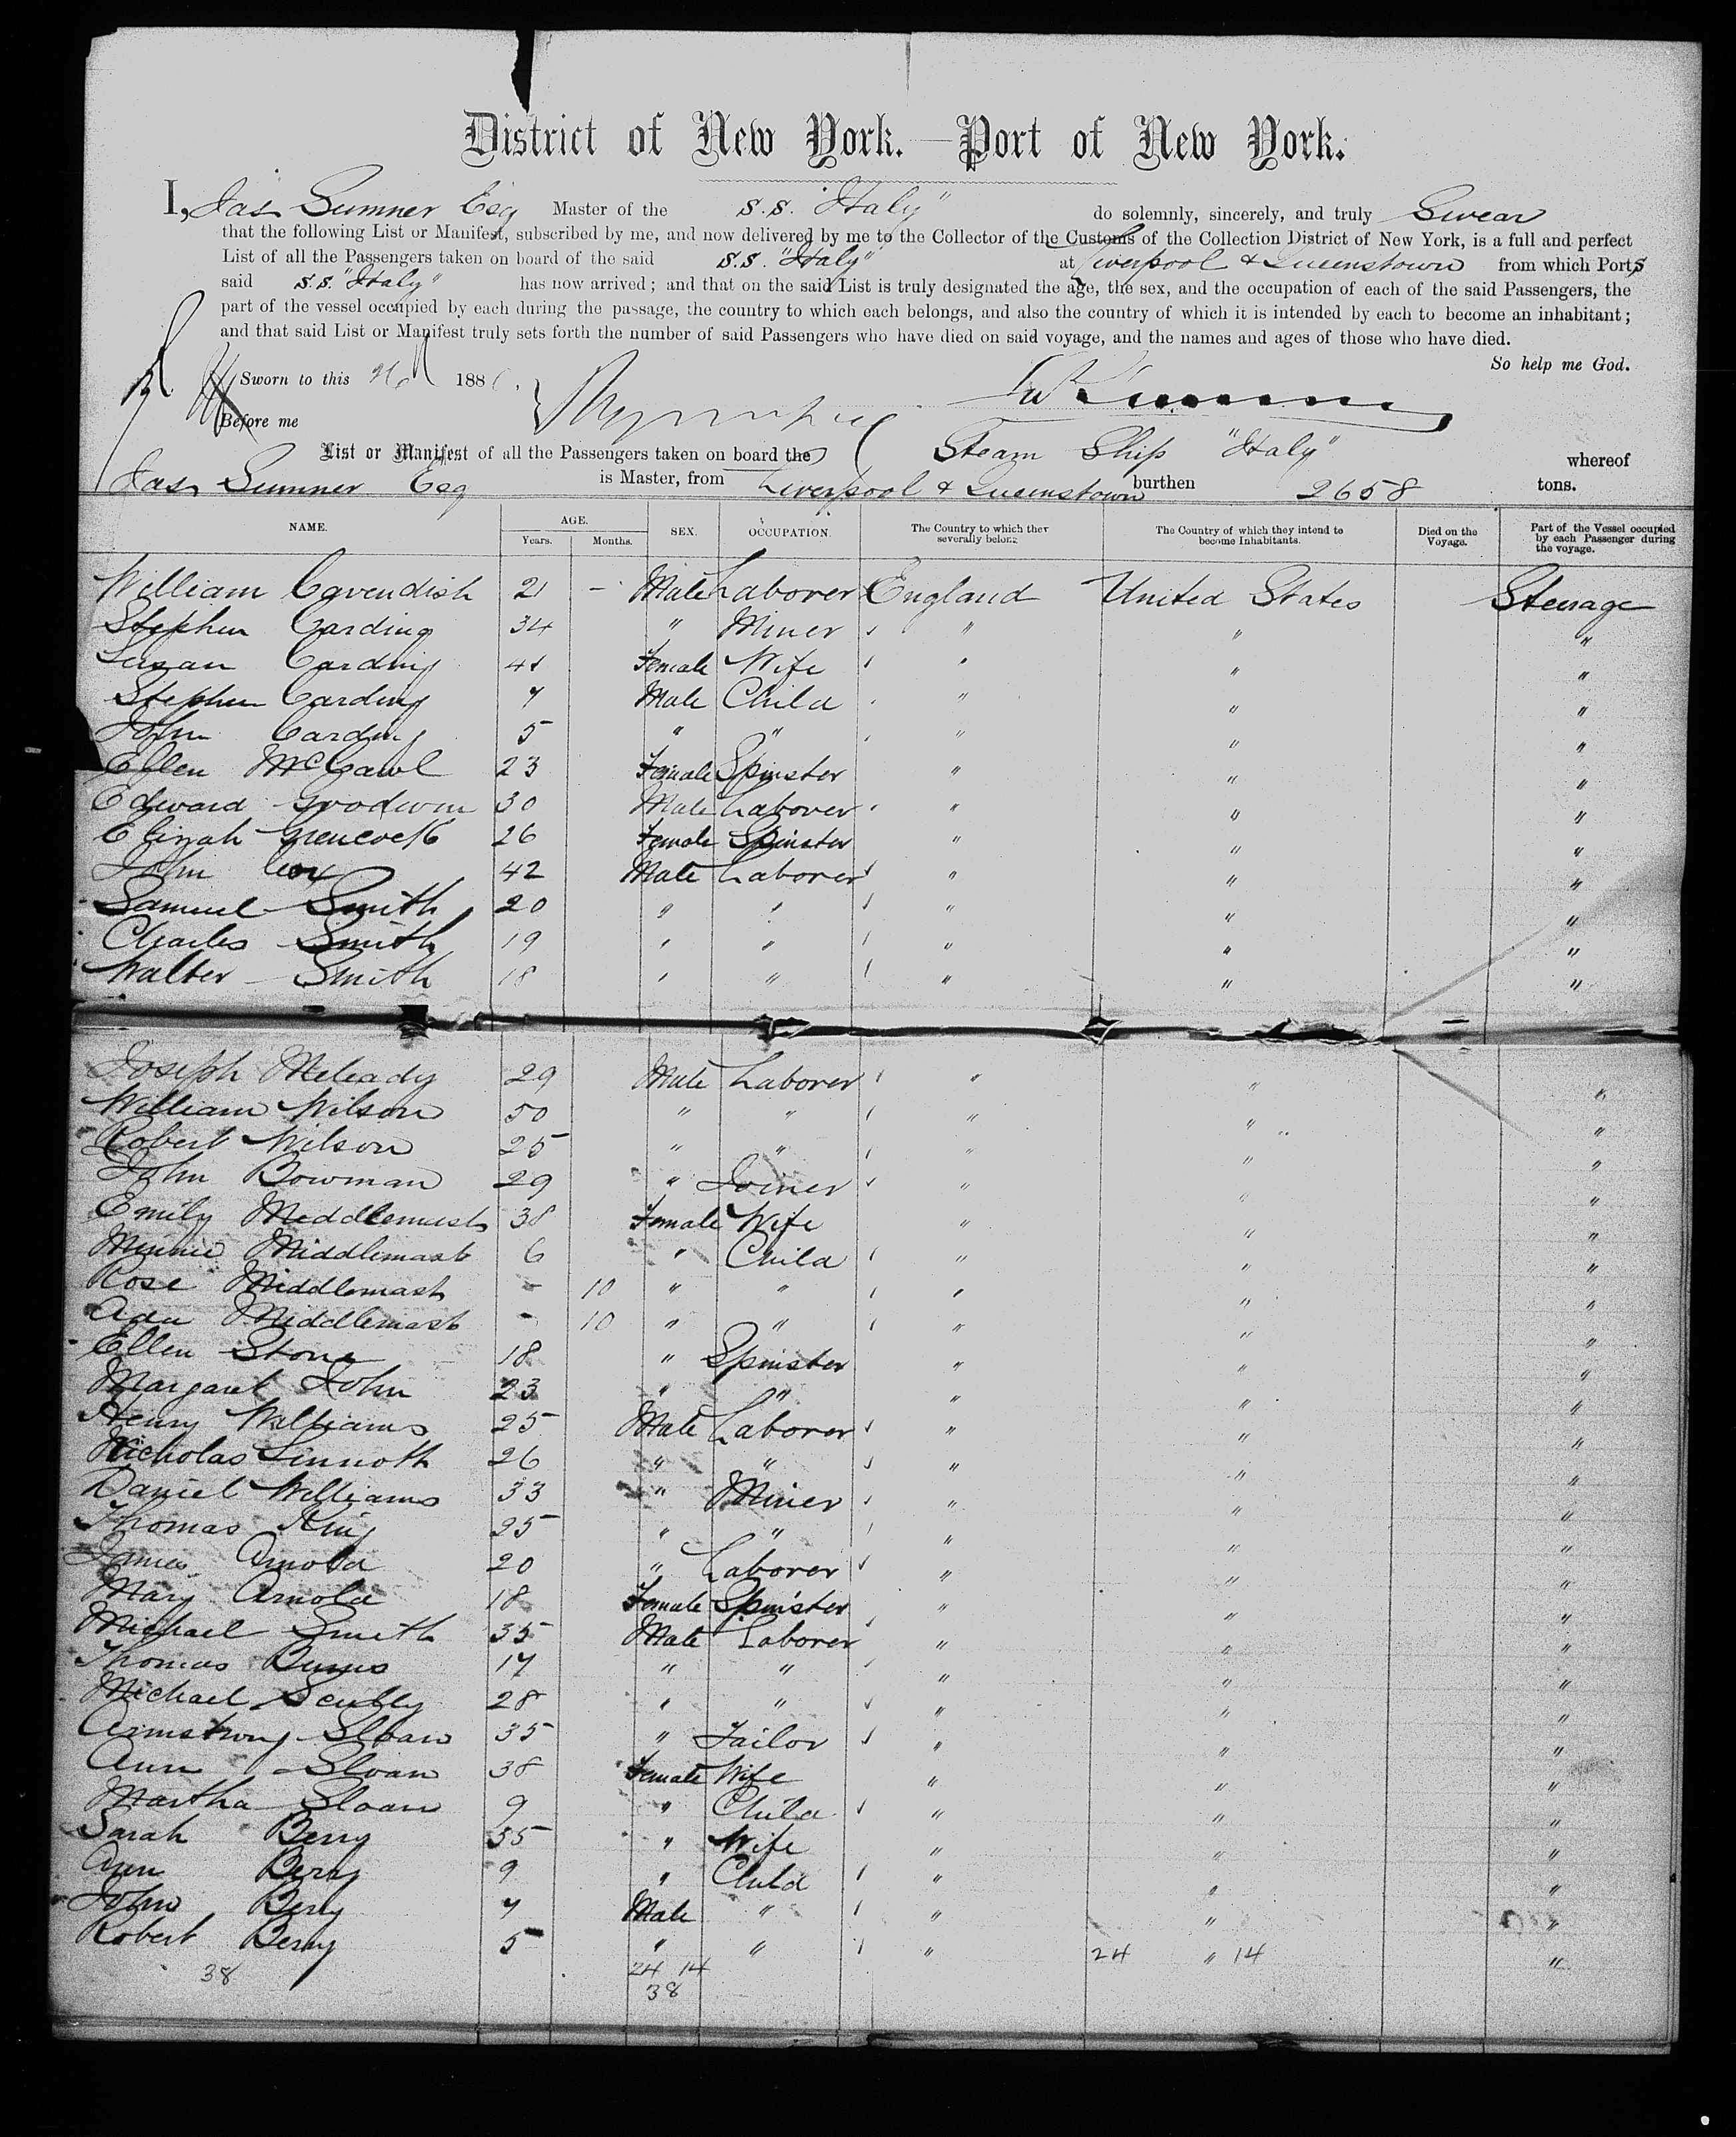 District of New York.—Port of New York.
I, Jas Sumner Esq Master of the S.S. "Italy" do solemnly, sincerely, and truly Swear
that the following List or Manifest, subscribed by me, and now delivered by me to the Collector of the Customs of the Collection District of New York, is a full and perfect
List of all the Passengers taken on board of the said S.S. "Italy" at Liverpool & Queenstown from which Ports
said S.S. "Italy" has now arrived; and that on the said List is truly designated the age, the sex, and the occupation of each of the said Passengers, the
part of the vessel occupied by each during the passage, the country to which each belongs, and also the country of which it is intended by each to become an inhabitant;
and that said List or Manifest truly sets forth the number of said Passengers who have died on said voyage, and the names and ages of those who have died.
So help me God.
Sworn to this 188
Before me
List or Manifest of all the Passengers taken on board the Steam Ship "Italy" whereof
Jas Sumner Esq is Master, from Liverpool & Queenstown burthen 2658 tons.
NAME. AGE. Years. Months. SEX. OCCUPATION. The Country to which they severally belong. The Country of which they intend to become Inhabitants. Died on the Voyage. Part of the Vessel occupied by each Passenger during the voyage.
William Cavendish 21 - Male Laborer England United States Steerage
Stephen Carding 34 " Miner " " "
Susan Carding 41 Female Wife " " "
Stephen Carding 7 Male Child " " "
John Carding 5 " " " " "
Ellen McGawl 23 Female Spinster " " "
Edward Goodwin 30 Male Laborer " " "
Elizah Greucock 26 Female Spinster " " "
John Cox 42 Male Laborer " " "
Samuel Smith 20 " " " " "
Charles Smith 19 " " " " "
Walter Smith 18 " " " " "
Joseph Meleady 29 Male Laborer " " "
William Wilson 50 " " " " "
Robert Wilson 25 " " " " "
John Bowman 29 " Joiner " " "
Emily Middlemast 38 Female Wife " " "
Minnie Middlemast 6 " Child " " "
Rose Middlemast - 10 " " " " "
Ada Middlemast - 10 " " " " "
Ellen Stone 18 " Spinster " " "
Margaret John 23 " " " " "
Henry Williams 25 Male Laborer " " "
Nicholas Sinnoth 26 " " " " "
Daniel Williams 33 " Miner " " "
Thomas King 25 " " " " "
James Arnold 20 " Laborer " " "
Mary Arnold 18 Female Spinster " " "
Michael Smith 35 Male Laborer " " "
Thomas Burns 17 " " " " "
Michael Scully 28 " " " " "
Armstrong Sloan 35 " Tailor " " "
Ann Sloan 38 Female Wife " " "
Martha Sloan 9 " Child " " "
Sarah Berry 35 " Wife " " "
Ann Berry 9 " Child " " "
John Berry 7 Male " " " "
Robert Berry 5 " " " 24 " 14 "
38 24 14
38